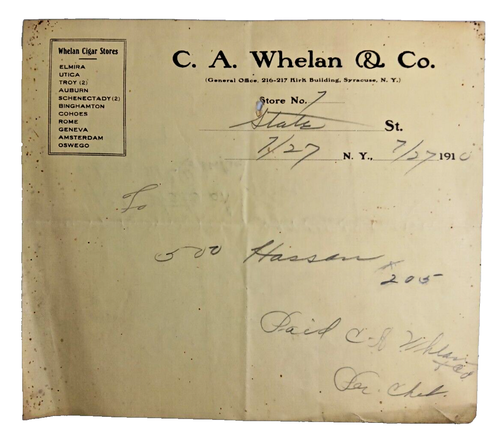 Whelan Cigar Stores
ELMIRA
UTICA
TROY (2)
AUBURN
SCHENECTADY (2)
BINGHAMTON
COHOES
ROME
GENEVA
AMSTERDAM
OSWEGO
C. A. Whelan & Co.
(General Office, 216-217 Kirk Building, Syracuse, N. Y.)
Store No. 7
State St.
7/27 N. Y., 7/27 191
To
500 Hassan
205
Paid C A Whelan & Co
Per